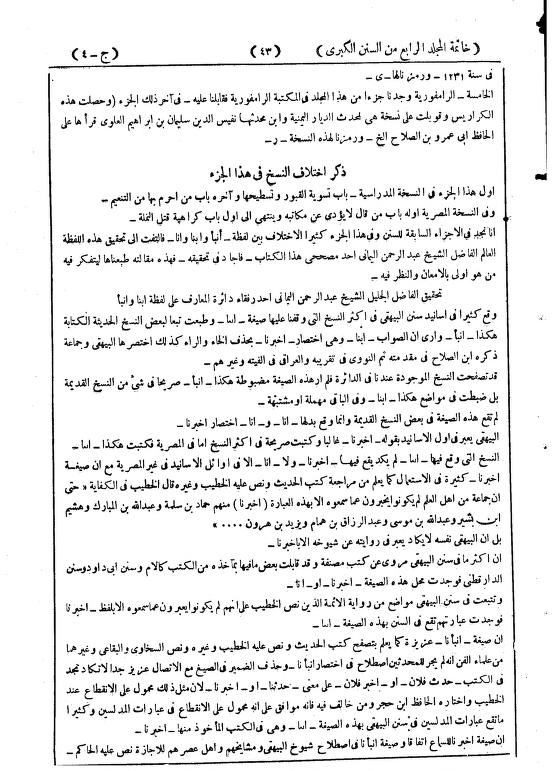 ( خاتمة المجلد الرابع من السنن الكبرى ) (٤٣) ( ج - ٤ )
فى سنة ١٢٣١ - ورمزنالها - ى -
الخامسة - الرامفورية وجدنا جزءا من هذا المجلد فى المكتبة الرامفورية فقابلنا عليه - فى آخر ذلك الجزء ( وحصلت هذه
الكراريس وقوبلت على نسخة هى لمحدث الديار اليمنية وابن محدثها نفيس الدين سليمان بن ابراهيم العلوى قرأها على
الحافظ ابى عمرو بن الصلاح الخ - ورمزنا لهذه النسخة - ر -
ذكر اختلاف النسخ فى هذا الجزء
اول هذا الجزء فى النسخة المدراسية - باب تسوية القبور وتسطيحها وآخره باب من احرم بها من التنعيم -
وفى النسخة المصرية اوله باب من قال لايؤدى عن مكاتبه وينتهى الى اول باب كراهية قتل النملة -
انا نجد فى الاجزاء السابقة للسنن وفى هذا الجزء كثيرا الاختلاف بين لفظة - أنبأ وابنا وانا - فالتفت الى تحقيق هذه اللفظة
العالم الفاضل الشيخ عبد الرحمن اليمانى احد مصححى هذا الكتاب - فاجاد فى تحقيقه - فهذه مقالته طبعناها ليتفكر فيه
من هو اولى بالامعان والنظر فيه -
تحقيق الفاضل الجليل الشيخ عبد الرحمن اليمانى احد رفقاء دائرة المعارف على لفظة ابنا وانبأ
وقع كثيرا فى اسانيد سنن البيهقى فى اكثر النسخ التى وقفنا عليها صيغة - اسا - وطبعت تبعا لبعض النسخ الحديثة الكتابة
هكذا - انبأ - وارى ان الصواب - ابنا - وهى اختصار - اخبرنا - بحذف الخاء والراء كذلك اختصرها البيهقى وجماعة
ذكره ابن الصلاح فى مقدمته ثم النووى فى تقريبه والعراقى فى الفيته وغيرهم -
قد تصفحت النسخ الموجودة عندنا فى الدائرة فلم ار هذه الصيغة مضبوطة هكذا - انبأ - صريحا فى شئ من النسخ القديمة
بل ضبطت فى مواضع هكذا - ابنا - وفى الباقى مهملة او مشتبهة -
لم تقع هذه الصيغة فى بعض النسخ القديمة وانما وقع بدلها - انا - و - انا - اختصار اخبرنا -
البيهقى يعبر فى اول الاسانيد بقوله - اخبرنا - غالبا وكتبت صريحة فى اكثر النسخ اما فى المصرية فكتبت هكذا - اسا -
النسخ التى وقع فيها - اسا - لم يكد يقع فيها - اخبرنا - ولا - انا - الا فى اوائل الاسانيد فى غير المصرية مع ان صيغة
اخبرنا - كثيرة فى الاستعمال كما يعلم من مراجعة كتب الحديث ونص عليه الخطيب وغيره قال الخطيب فى الكفاية « حتى
ان جماعة من اهل العلم لم يكونوا يخبرون عما سمعوه الا بهذه العبارة ( اخبرنا ) منهم حماد بن سلمة وعبد الله بن المبارك وهشيم
ابن بشير وعبيد الله بن موسى وعبد الرزاق بن همام ويزيد بن هرون ٠٠٠٠ »
بل ان البيهقى نفسه لايكاد يعبر فى روايته عن شيوخه الا باخبرنا -
ان اكثر ما فى سنن البيهقى مروى عن كتب مصنفة وقد قابلت بعض ما فيها بمآخذه من الكتب كالام وسنن ابى داود وسنن
الدارقطنى فوجدت محل هذه الصيغة - اخبرنا - او - انا -
وتتبعت فى سنن البيهقى مواضع من رواية الائمة الذين نص الخطيب على انهم لم يكونوا يعبرون عما سمعوه الا بلفظ - اخبرنا
فوجدت عباراتهم تقع فى السنن بهذه الصيغة - اسا -
ان صيغة - انبأنا - عزيزة كما يعلم بتصفح كتب الحديث ونص عليه الخطيب وغيره ونص السخاوى والبقاعى وغيرهما
من علماء الفن انه لم يجر للمحدثين اصطلاح فى اختصار انبأنا - وحذف الضمير فى الصيغ مع الاتصال عزيز جدا لا تكاد تجد
فى الكتب - حدث فلان - او - اخبر فلان - على معنى - حدثنا - او - اخبرنا - لان مثل ذلك محمول على الانقطاع عند
الخطيب واختاره الحافظ ابن حجر ومن خالف فيه فانه موافق على انه محمول على الانقطاع فى عبارات المدلسين وكثيرا
ما تقع عبارات المدلسين فى سنن البيهقى بهذه الصيغة - اسا - وهى فى الكتب المأخوذ منها - اخبرنا -
ان صيغة اخبرنا للسماع اتفاقا وصيغة انبأنا فى اصطلاح شيوخ البيهقى ومشايخهم واهل عصرهم للاجازة نص عليه الحاكم -